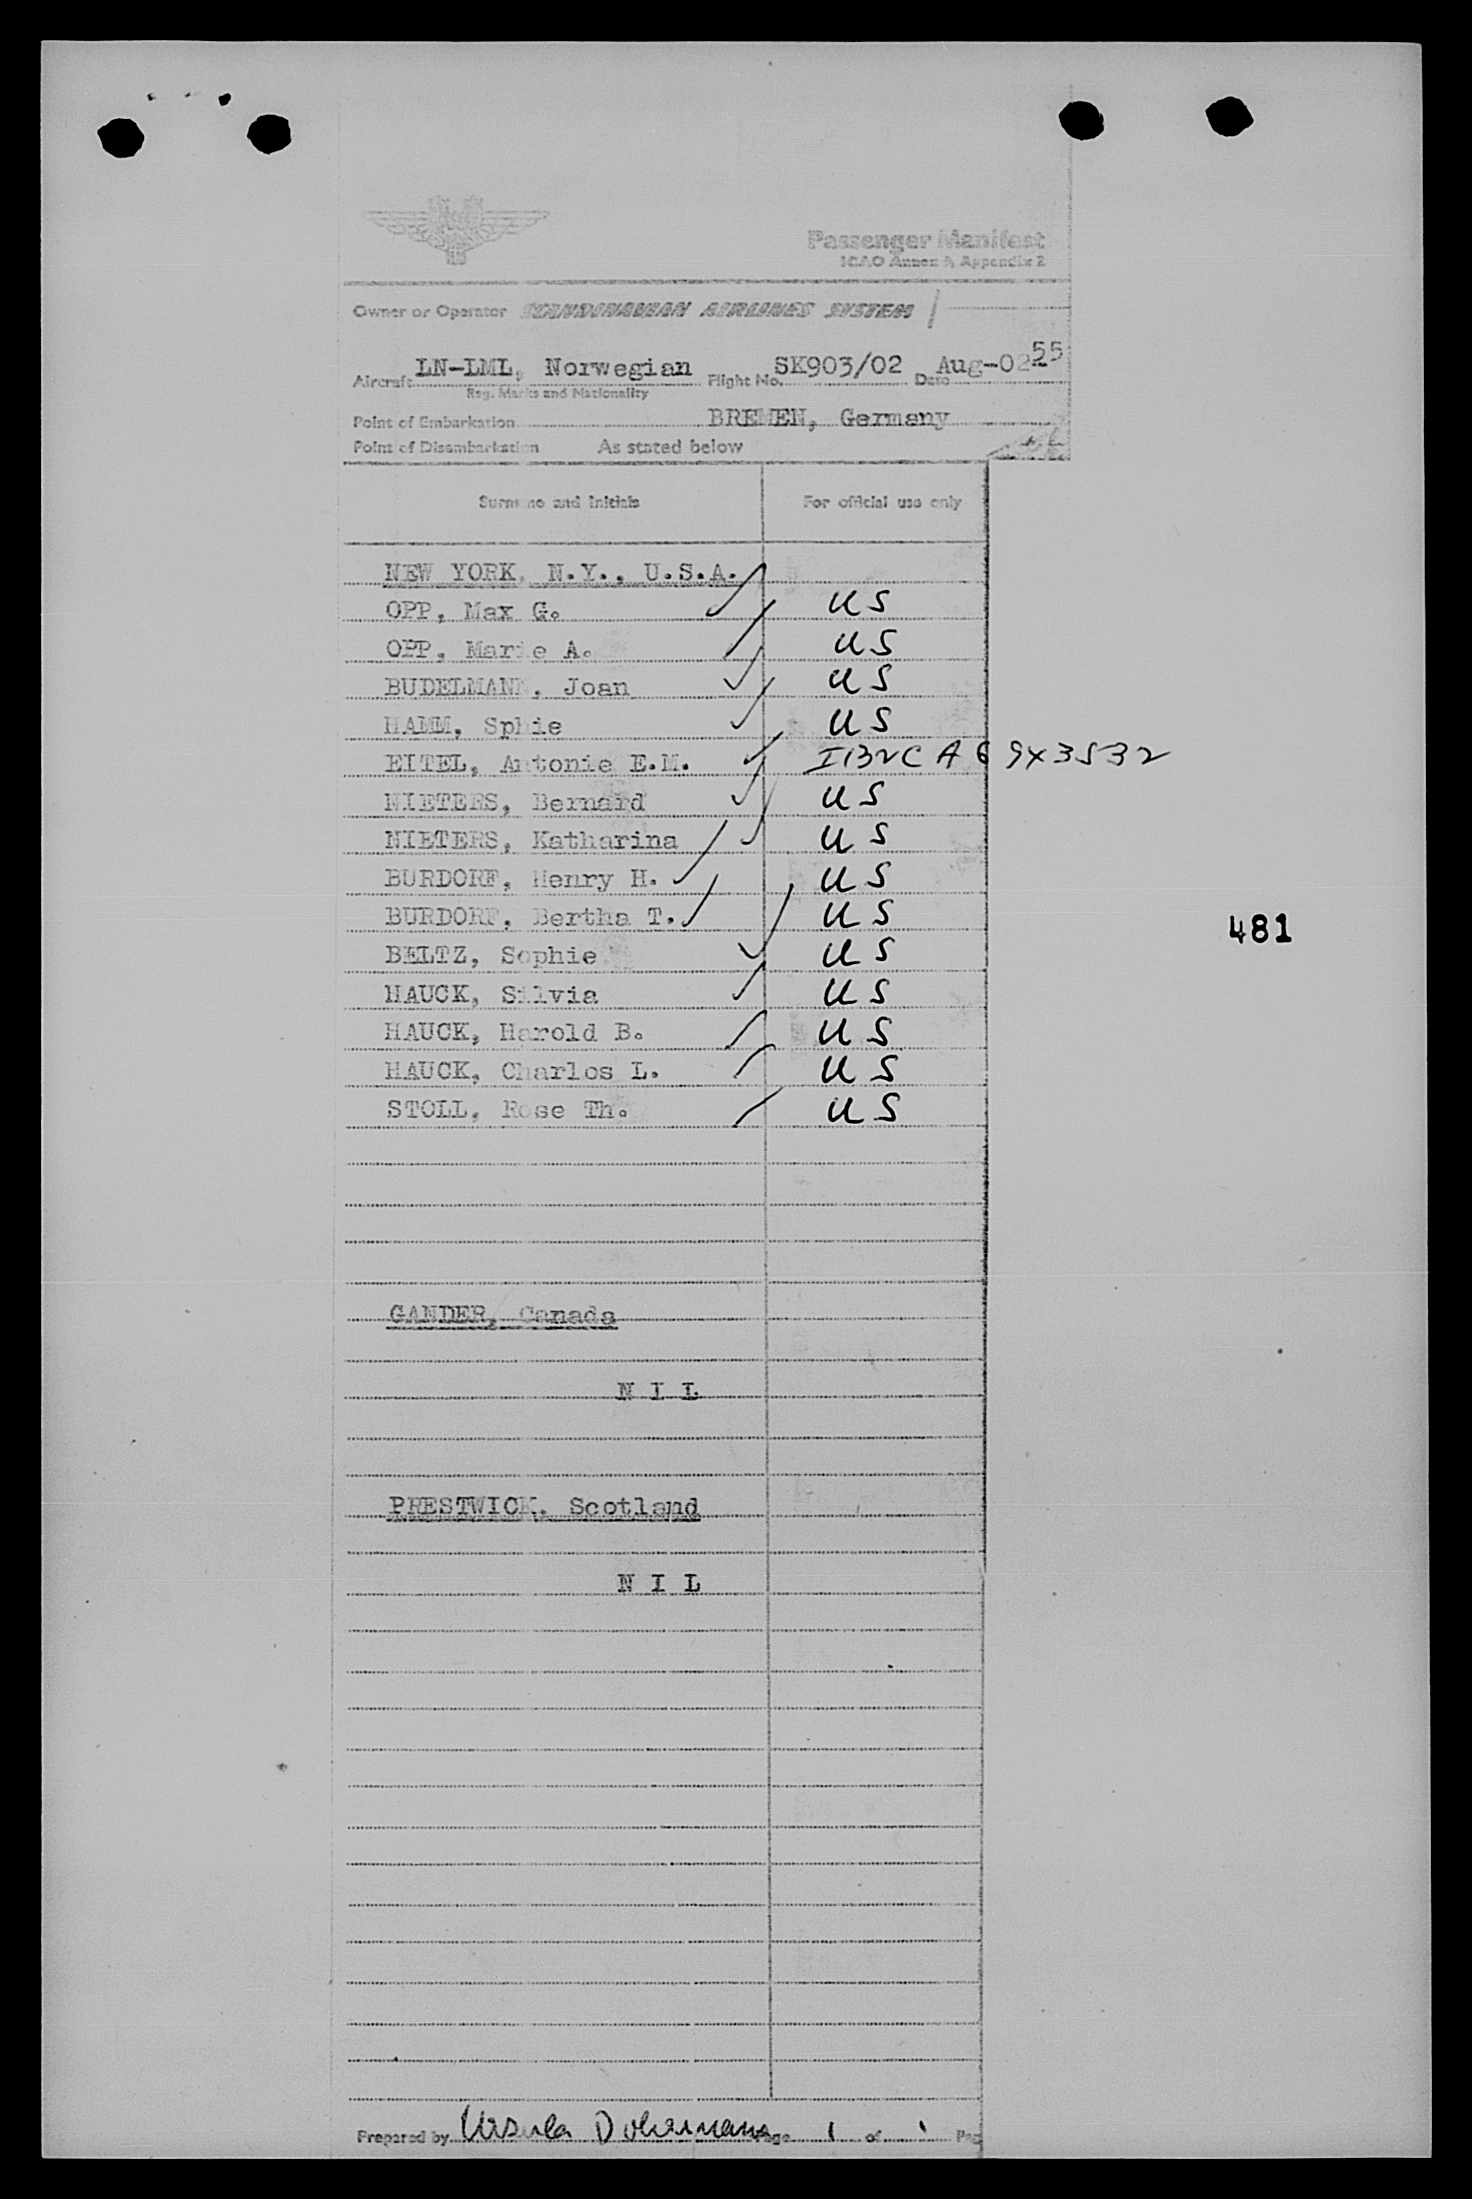 Passenger Manifest
ICAO Annex 9, Appendix 2
Owner or Operator SCANDINAVIAN AIRLINES SYSTEM
Aircraft LN-LML, Norwegian Flight No. SK903/02 Date Aug-02 55
Reg. Marks and Nationality
Point of Embarkation BREMEN, Germany
Point of Disembarkation As stated below
Surname and Initials For official use only
NEW YORK, N.Y., U.S.A.
OPP, Max G. US
OPP, Marie A. US
BUDELMANN, Joan US
HAMM, Sphie US
EITEL, Antonie E.M. I132C A69X3532
NIETERS, Bernard US
NIETERS, Katharina US
BURDORF, Henry H. US
BURDORF, Bertha T. US
481
BELTZ, Sophie US
HAUCK, Silvia US
HAUCK, Harold B. US
HAUCK, Charlos L. US
STOLL, Rose Th. US
GANDER, Canada
N I L
PRESTWICK, Scotland
N I L
Prepared by Ursula Page 1 of 1 Pag